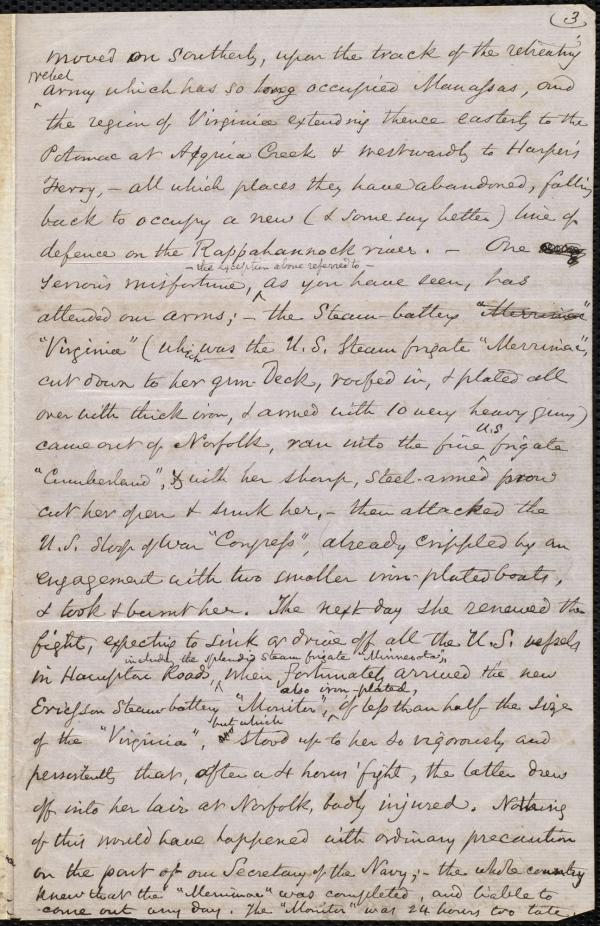 (3
moved on southerly, upon the track of the retreating
rebel
army which has so long occupied Manassas, and
the region of Virginia extending thence easterly to the
Potomac at Acquia Creek & westwardly to Harper's
Ferry, – all which places they have abandoned, falling
back to occupy a new (& some say better) line of
defence on the Rappahannock river. – One
– the exception above referred to –
serious misfortune, as you have seen, has
attended our arms; – the Steam-battery "Merrimac"
"Virginia" (which was the U.S. Steam frigate "Merrimac",
cut down to her gun Deck, roofed in, & plated all
over with thick iron, & armed with 10 very heavy guns)
U.S.
came out of Norfolk, ran into the fine frigate
"Cumberland", & with her sharp, steel-armed prow
cut her open & sunk her, – then attacked the
U.S. Sloop of War "Congress", already crippled by an
engagement with two smaller iron-plated boats,
& took & burnt her. The next day she renewed the
fight, expecting to sink or drive off all the U.S. vessels
includg the splendid steam frigate "Minnesota",
in Hampton Roads, when fortunately arrived the new
also iron-plated,
Ericsson Steam battery "Monitor", of less than half the size
but which
of the "Virginia", stood up to her so vigorously and
persistently that, after a 4 hours' fight, the latter drew
off into her lair at Norfolk, badly injured. Nothing
of this would have happened with ordinary precaution
on the part of our Secretary of the Navy; – the whole country
knew that the "Merrimac" was completed, and liable to
come out any day. The "Monitor" was 24 hours too late